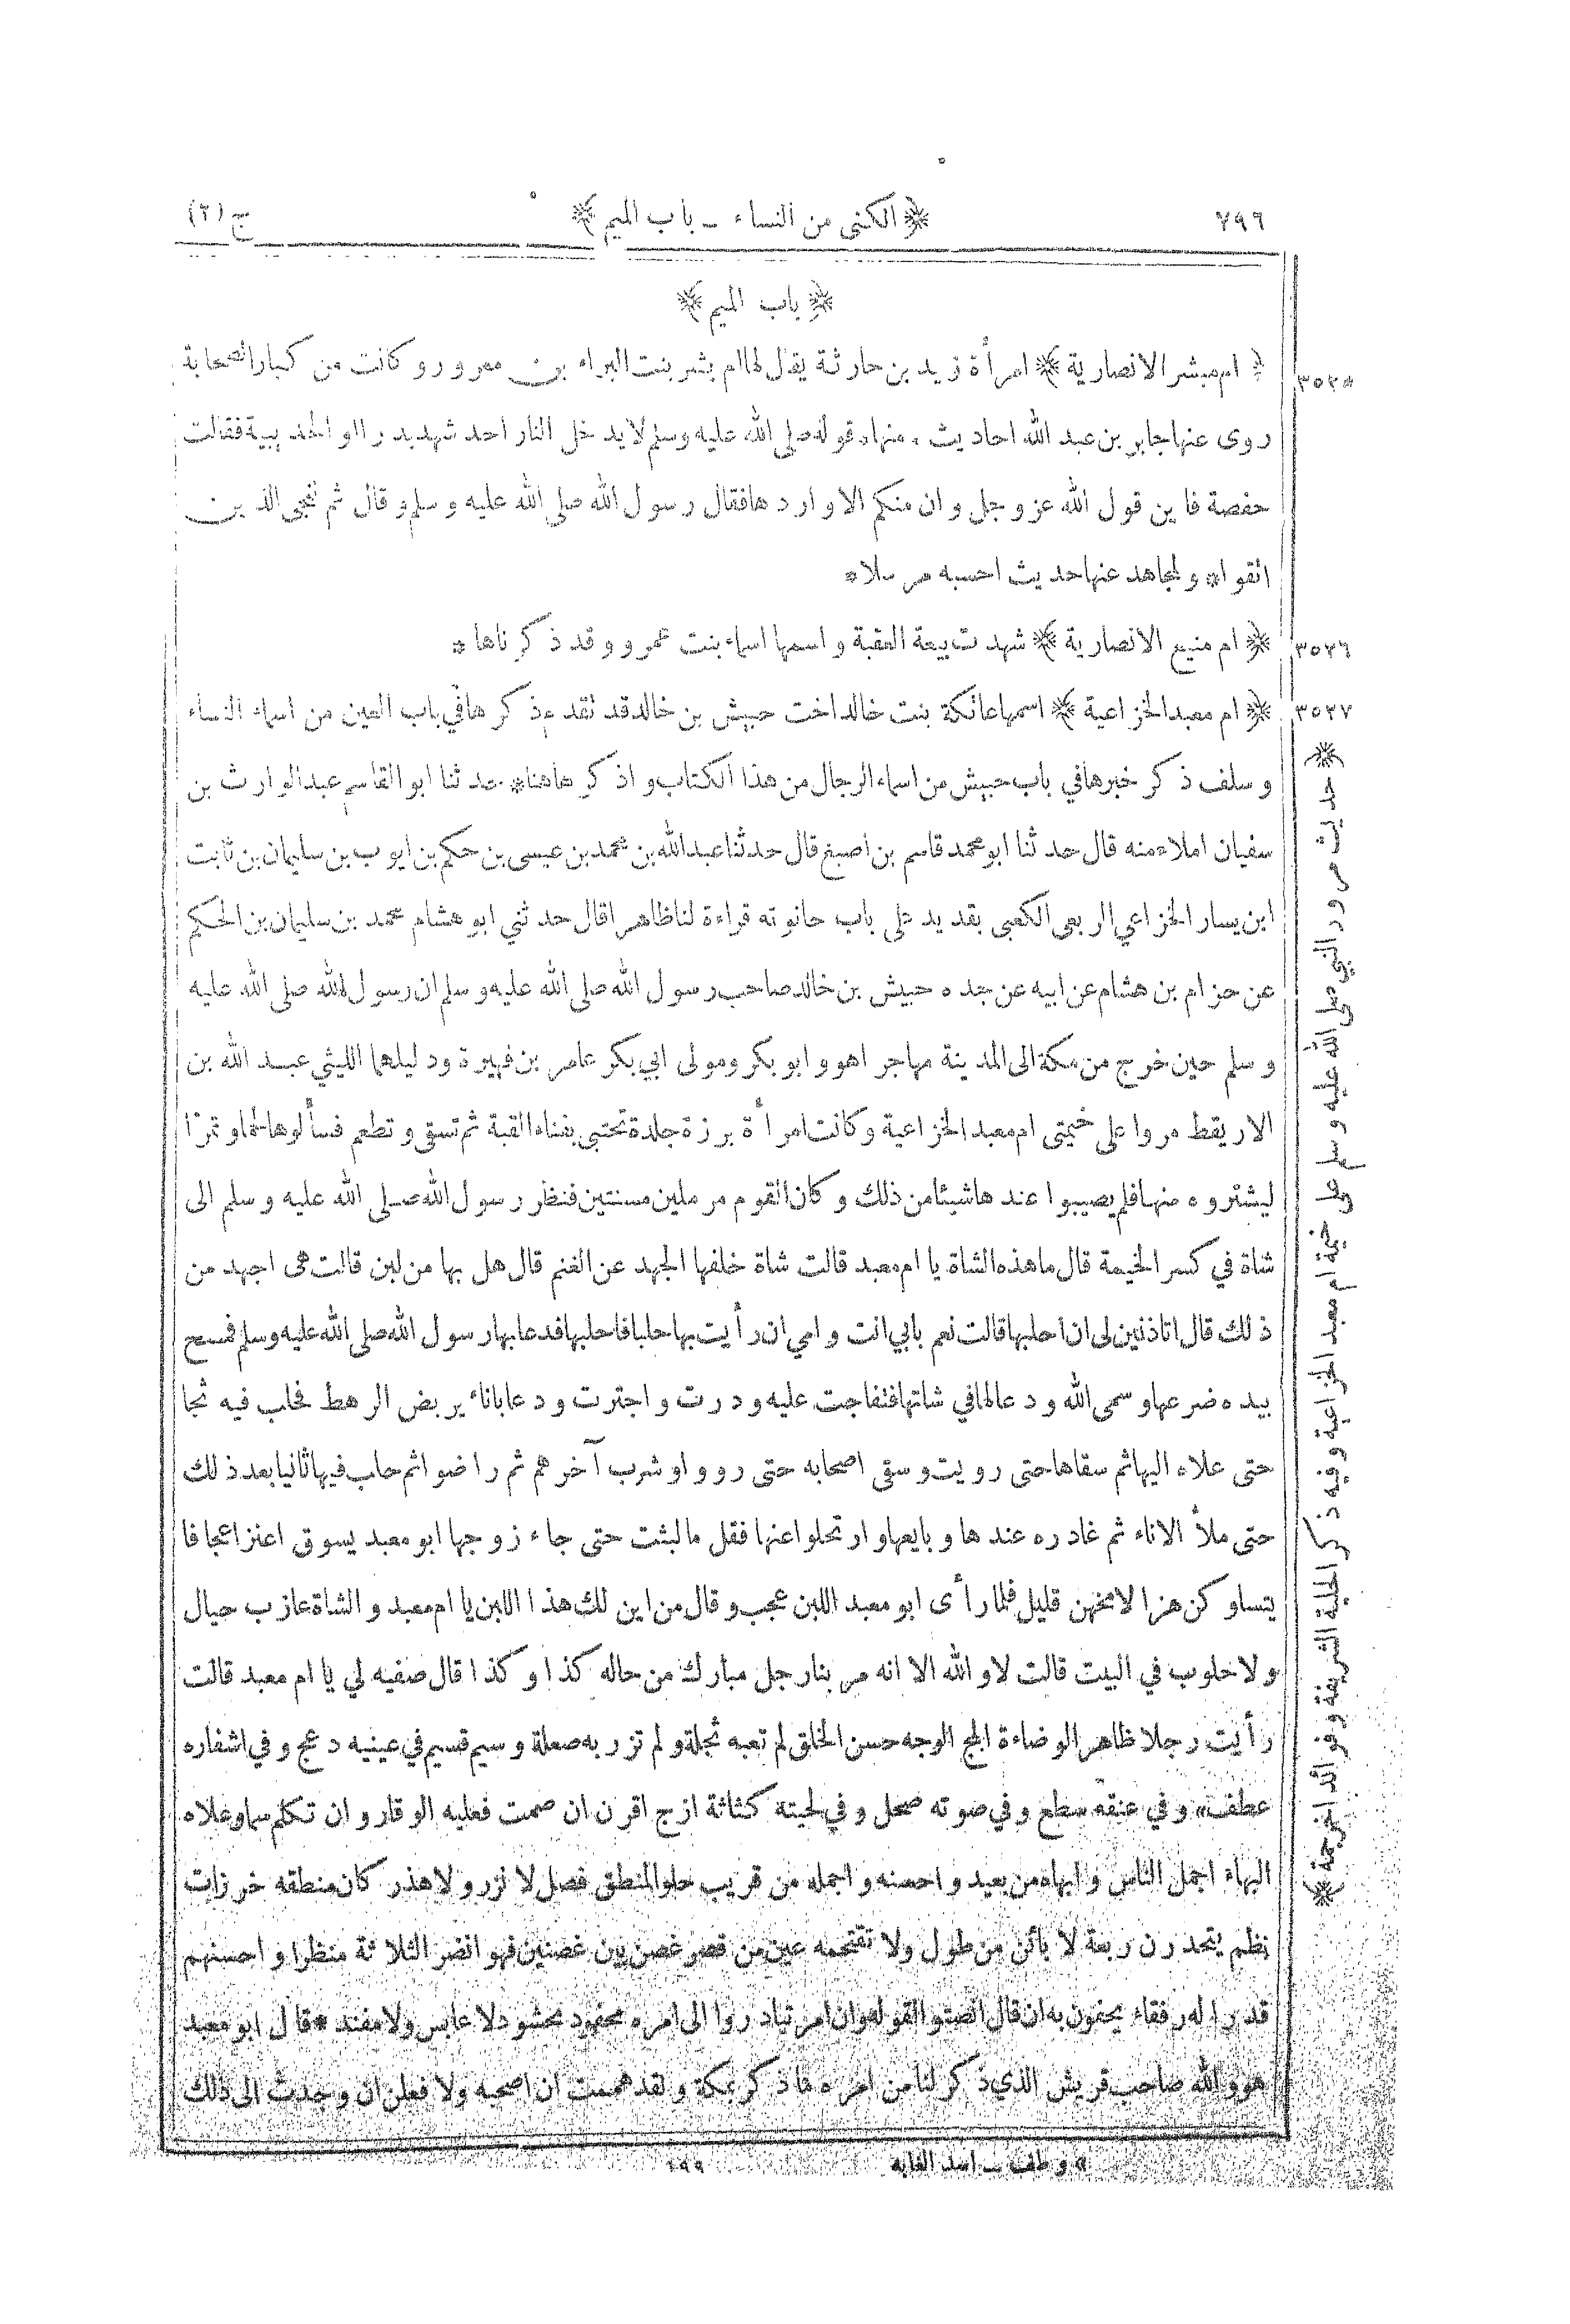 ٧٩٦ ﴿الكنى من النساء ـ باب الميم﴾ ج (٢)
﴿باب الميم﴾
﴿ام مبشر الانصارية﴾ امرأة زيد بن حارثة يقال لها ام بشر بنت البراء بن معرور وكانت من كبار الصحابة
٣٥٣٥
روى عنها جابر بن عبد الله احاديث * منها قوله صلى الله عليه وسلم لا يدخل النار احد شهد بدرا او الحديبية فقالت
حفصة فاين قول الله عز وجل وان منكم الا واردها فقال رسول الله صلى الله عليه وسلم وقال ثم ننجي الذين
اتقوا* ولمجاهد عنها حديث احسبه مرسلا*
﴿ام منيع الانصارية﴾ شهدت بيعة العقبة واسمها اسماء بنت عمرو وقد ذكرناها *
٣٥٣٦
﴿ام معبد الخزاعية﴾ اسمها عاتكة بنت خالد اخت حبيش بن خالد قد تقدم ذكرها في باب العين من اسماء النساء
٣٥٣٧
وسلف ذكر خبرها في باب حبيش من اسماء الرجال من هذا الكتاب واذكره هاهنا* حدثنا ابو القاسم عبد الوارث بن
سفيان املاء منه قال حدثنا ابو محمد قاسم بن اصبغ قال حدثنا عبد الله بن محمد بن عيسى بن حكم بن ايوب بن سليمان بن ثابت
ابن يسار الخزاعي الربعي الكعبي بقديد على باب حانوته قراءة لنا ظاهرا قال حدثني ابو هشام محمد بن سليمان بن الحكم
عن حزام بن هشام عن ابيه عن جده حبيش بن خالد صاحب رسول الله صلى الله عليه وسلم ان رسول الله صلى الله عليه
وسلم حين خرج من مكة الى المدينة مهاجرا هو وابو بكر ومولى ابي بكر عامر بن فهيرة ودليلهما الليثي عبد الله بن
الاريقط مروا على خيمتي ام معبد الخزاعية وكانت امرأة برزة جلدة تحتبي بفناء القبة ثم تسقي وتطعم فسألوها لحما وتمرا
ليشتروه منها فلم يصيبوا عندها شيئا من ذلك وكان القوم مرملين مسنتين فنظر رسول الله صلى الله عليه وسلم الى
شاة في كسر الخيمة قال ما هذه الشاة يا ام معبد قالت شاة خلفها الجهد عن الغنم قال هل بها من لبن قالت هى اجهد من
ذلك قال اتاذنين لى ان احلبها قالت نعم بابي انت وامي ان رأيت بها حلبا فاحلبها فدعا بها رسول الله صلى الله عليه وسلم فمسح
بيده ضرعها وسمى الله ودعا لها في شاتها فتفاجت عليه ودرت واجترت ودعا باناء يربض الرهط فحلب فيه ثجا
حتى علاه البهاء ثم سقاها حتى رويت وسقى اصحابه حتى رووا وشرب آخرهم ثم راضوا ثم حلب فيها ثانيا بعد ذلك
حتى ملأ الاناء ثم غادره عندها وبايعها وارتحلوا عنها فقل ما لبثت حتى جاء زوجها ابو معبد يسوق اعنزا عجافا
يتساوكن هزالا مخهن قليل فلما رأى ابو معبد اللبن عجب وقال من اين لك هذا اللبن يا ام معبد والشاة عازب حيال
ولا حلوب في البيت قالت لا والله الا انه مر بنا رجل مبارك من حاله كذا وكذا قال صفيه لي يا ام معبد قالت
رأيت رجلا ظاهر الوضاءة ابلج الوجه حسن الخلق لم تعبه ثجلة ولم تزر به صعلة وسيم قسيم في عينيه دعج وفي اشفاره
عطف* وفي عنقه سطع وفي صوته صحل وفي لحيته كثاثة ازج اقرن ان صمت فعليه الوقار وان تكلم سما وعلاه
البهاء اجمل الناس وابهاه من بعيد واحسنه واجمله من قريب حلو المنطق فصل لا نزر ولا هذر كان منطقه خرزات
نظم يتحدرن ربعة لا يائن من طول ولا تقتحمه عين من قصر غصن بين غصنين فهو انضر الثلاثة منظرا واحسنهم
قدرا له رفقاء يحفون به ان قال انصتوا لقوله وان امر تبادروا الى امره محفود محشود لا عابس ولا مفند * قال ابو معبد
هو والله صاحب قريش الذي ذكر لنا من امره ما ذكر بمكة ولقد هممت ان اصحبه ولا فعلن ان وجدت الى ذلك
* وطف ـ اسد الغابه
﴿حديث مرور النبي صلى الله عليه وسلم على خيمة ام معبد الخزاعية وفيه ذكر الحلية الشريفة وفوائد اخر جمة﴾